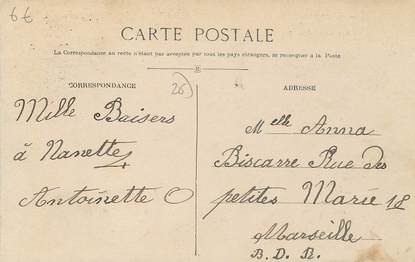 6€
CARTE POSTALE
La Correspondance au recto n'étant pas acceptée par tous les pays étrangers, se renseigner à la Poste
B
CORRESPONDANCE
26)
ADRESSE
Mille Baisers
à Nanette
Antoinette O
Melle Anna
Biscarre Rue des
petites Marie 18
Marseille
B. D. R.